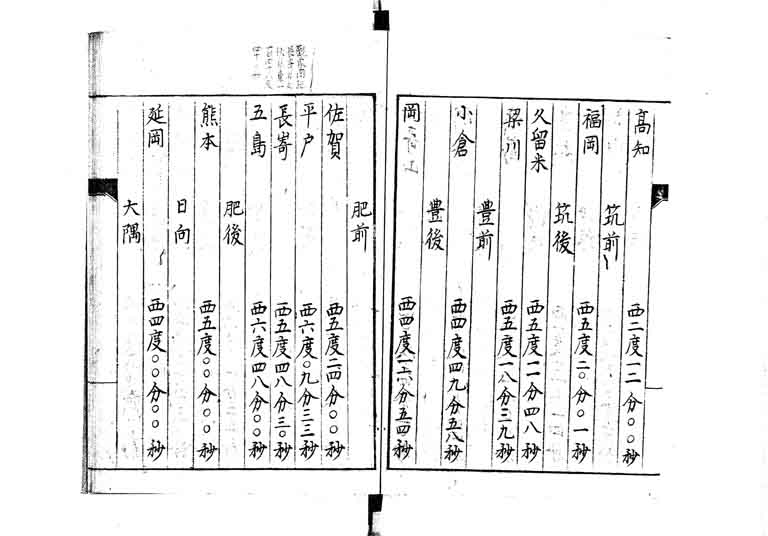 高知 西二度一二分〇〇秒
筑前
福岡 西五度二〇分〇一秒
筑後
久留米 西五度一一分四八秒
梁川 西五度一八分三九秒
豊前
小倉 西四度四九分五八秒
豊後
岡 西四度一二分五四秒
肥前
佐賀 西五度二四分〇〇秒
平戸 西六度〇九分三三秒
長嵜 西五度四八分三〇秒
五島 西六度四八分〇〇秒
肥後
熊本 西五度〇〇分〇〇秒
日向
延岡 西四度〇〇分〇〇秒
大隅